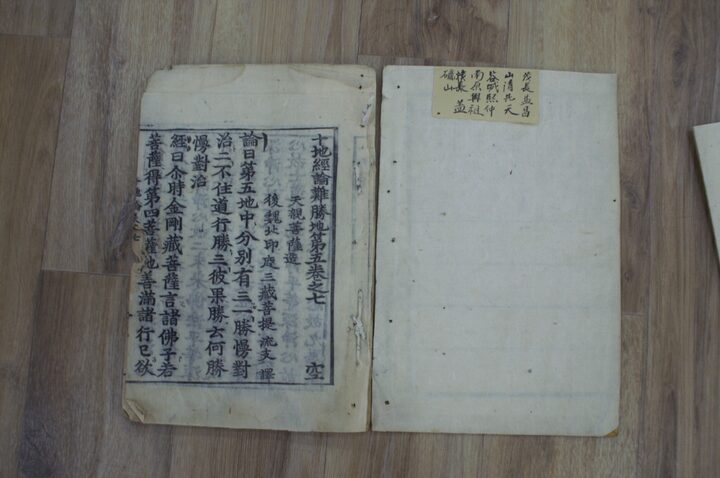 茂長益昌
山清天
谷城熙仲
南原興
長 益
山
十地經論難勝地第五卷之七 空
天親菩薩造
後魏北印度三藏菩提流支譯
論曰第五地中分別有三一勝慢對
治二不住道行勝三彼果勝云何勝
慢對治
經曰尒時金剛藏菩薩言諸佛子若
菩薩得第四菩薩地善滿諸行已欲